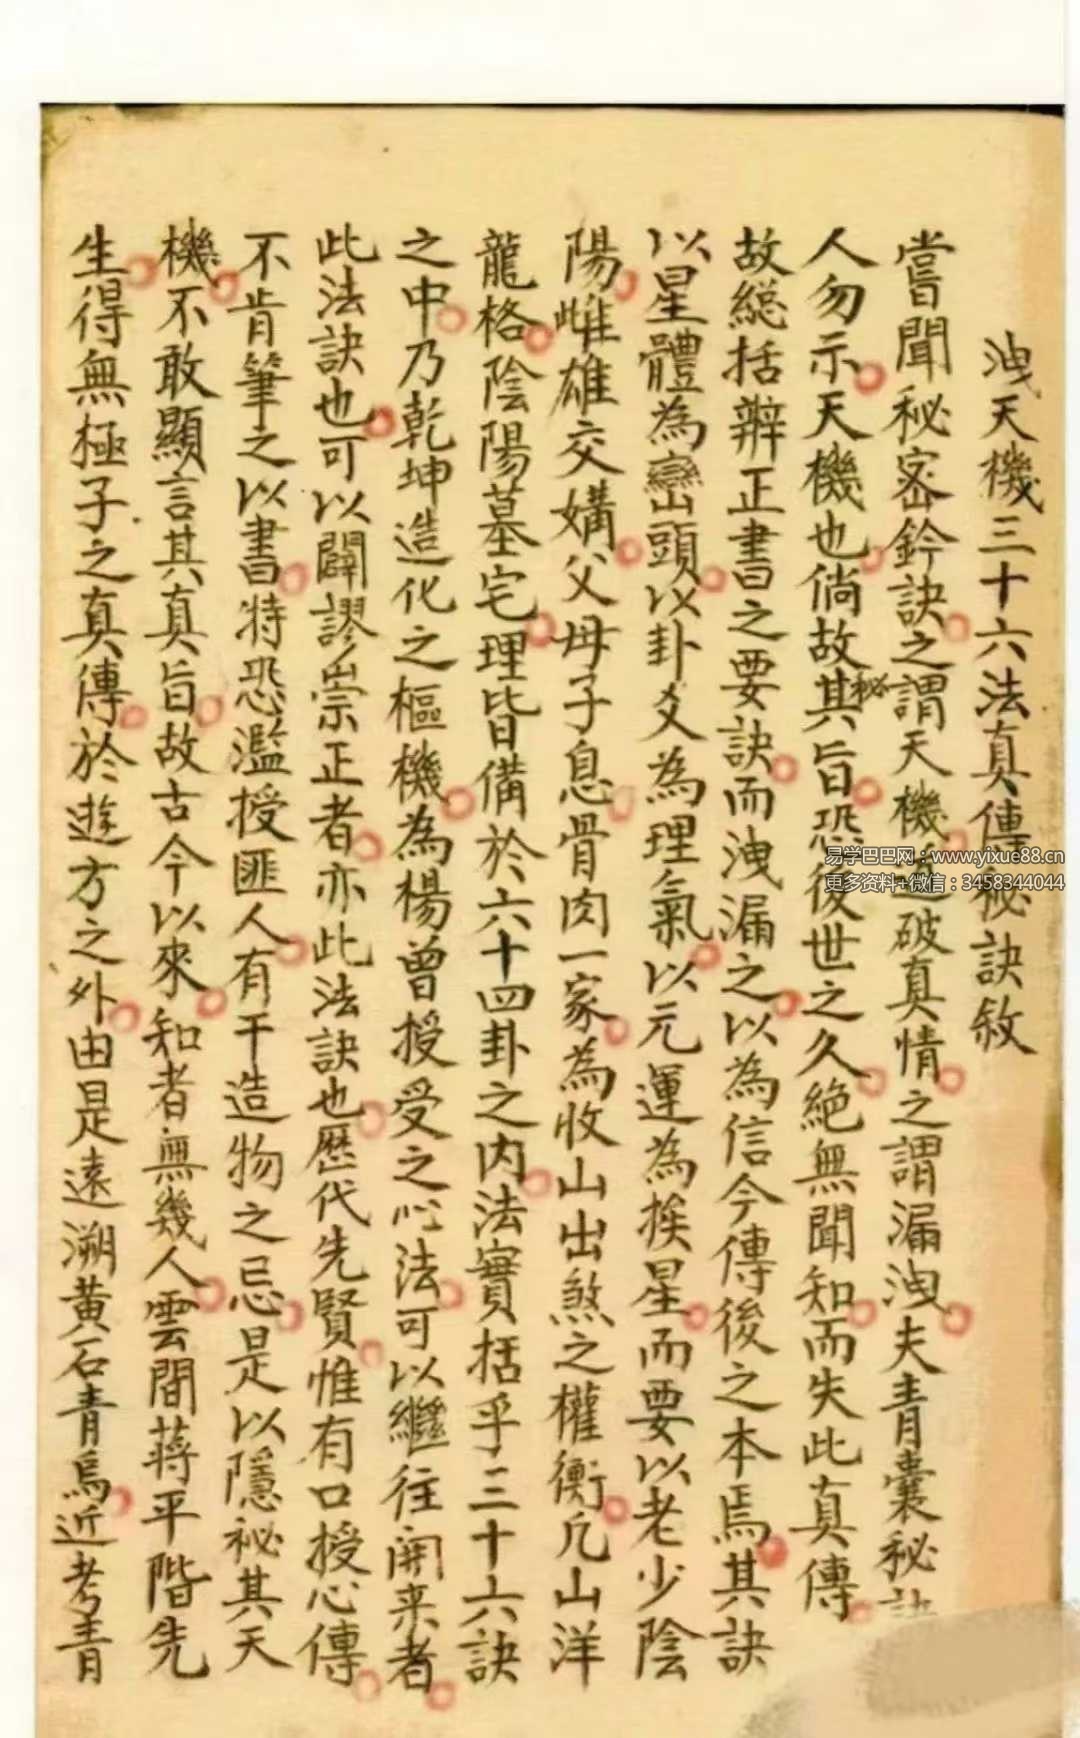 洩天機三十六法真傳秘訣敘
嘗聞秘密鈐訣之謂天機道破真情之謂漏洩夫青囊秘訣
人勿示天機也倘故其秘旨恐後世之久絕無聞知而失此真傳
故總括辨正書之要訣而洩漏之以為信今傳後之本焉其訣
以星體為巒頭以卦爻為理氣以元運為挨星而要以老少陰
陽雌雄交媾父母子息骨肉一家為收山出煞之權衡凢山洋
龍格陰陽墓宅理皆備於六十四卦之内法實括乎三十六訣
之中乃乾坤造化之樞機為楊曾授受之心法可以繼往開来者
此法訣也可以闢謬崇正者亦此法訣也歷代先賢惟有口授心傳
不肯筆之以書特恐濫授匪人有干造物之忌是以隱秘其天
機不敢顯言其真旨故古今以來知者無幾人雲間蔣平階先
生得無極子之真傳於遊方之外由是遠溯黃石青烏近考青
易学巴巴网：www.yixue88.cn
更多资料+微信：3458344044